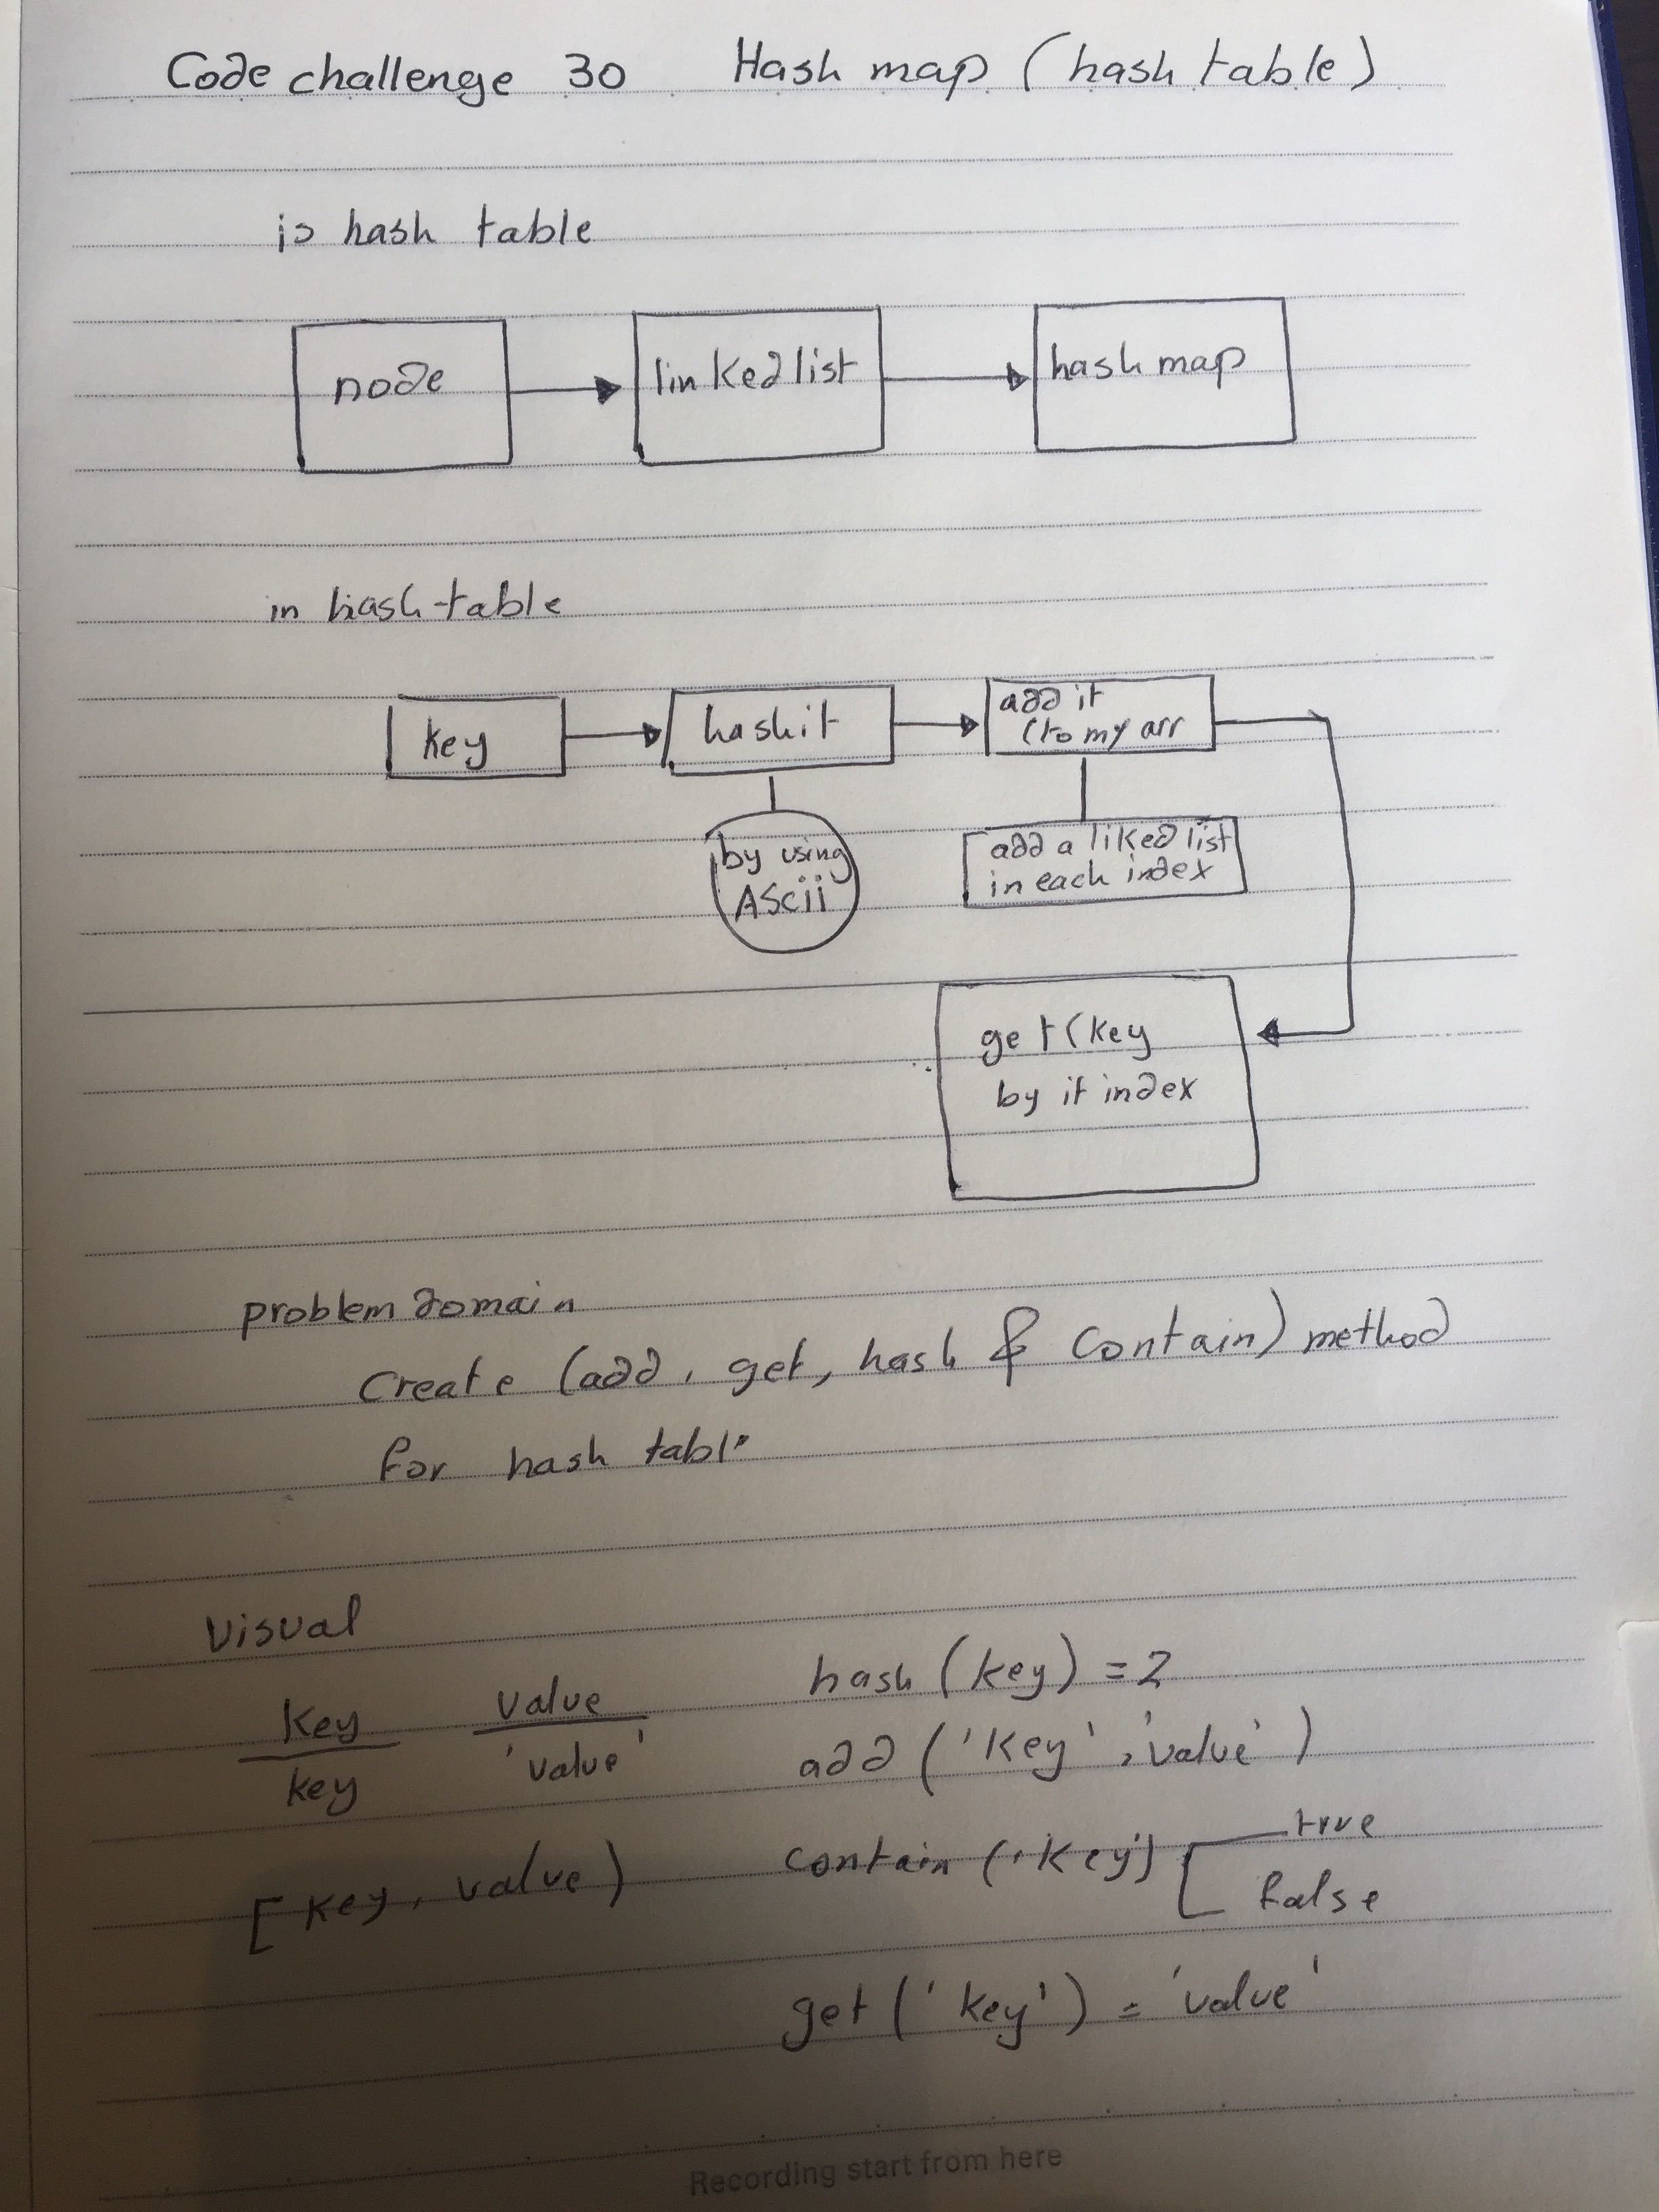 Code challenge 30 Hash map (hash table)
is hash table
node
linked list
hash map
in hash table
key
hash it
add it
(to my arr
by using
ASCii
add a liked list
in each index
get (key
by it index
problem domain
Create (add, get, hash & Contain) method
for hash tabl
Visual
Key value
key 'value'
[key, value)
hash (key) = 2
add ('key', 'value')
contain ('key')
true
false
get ('key') = 'value'
Recording start from here